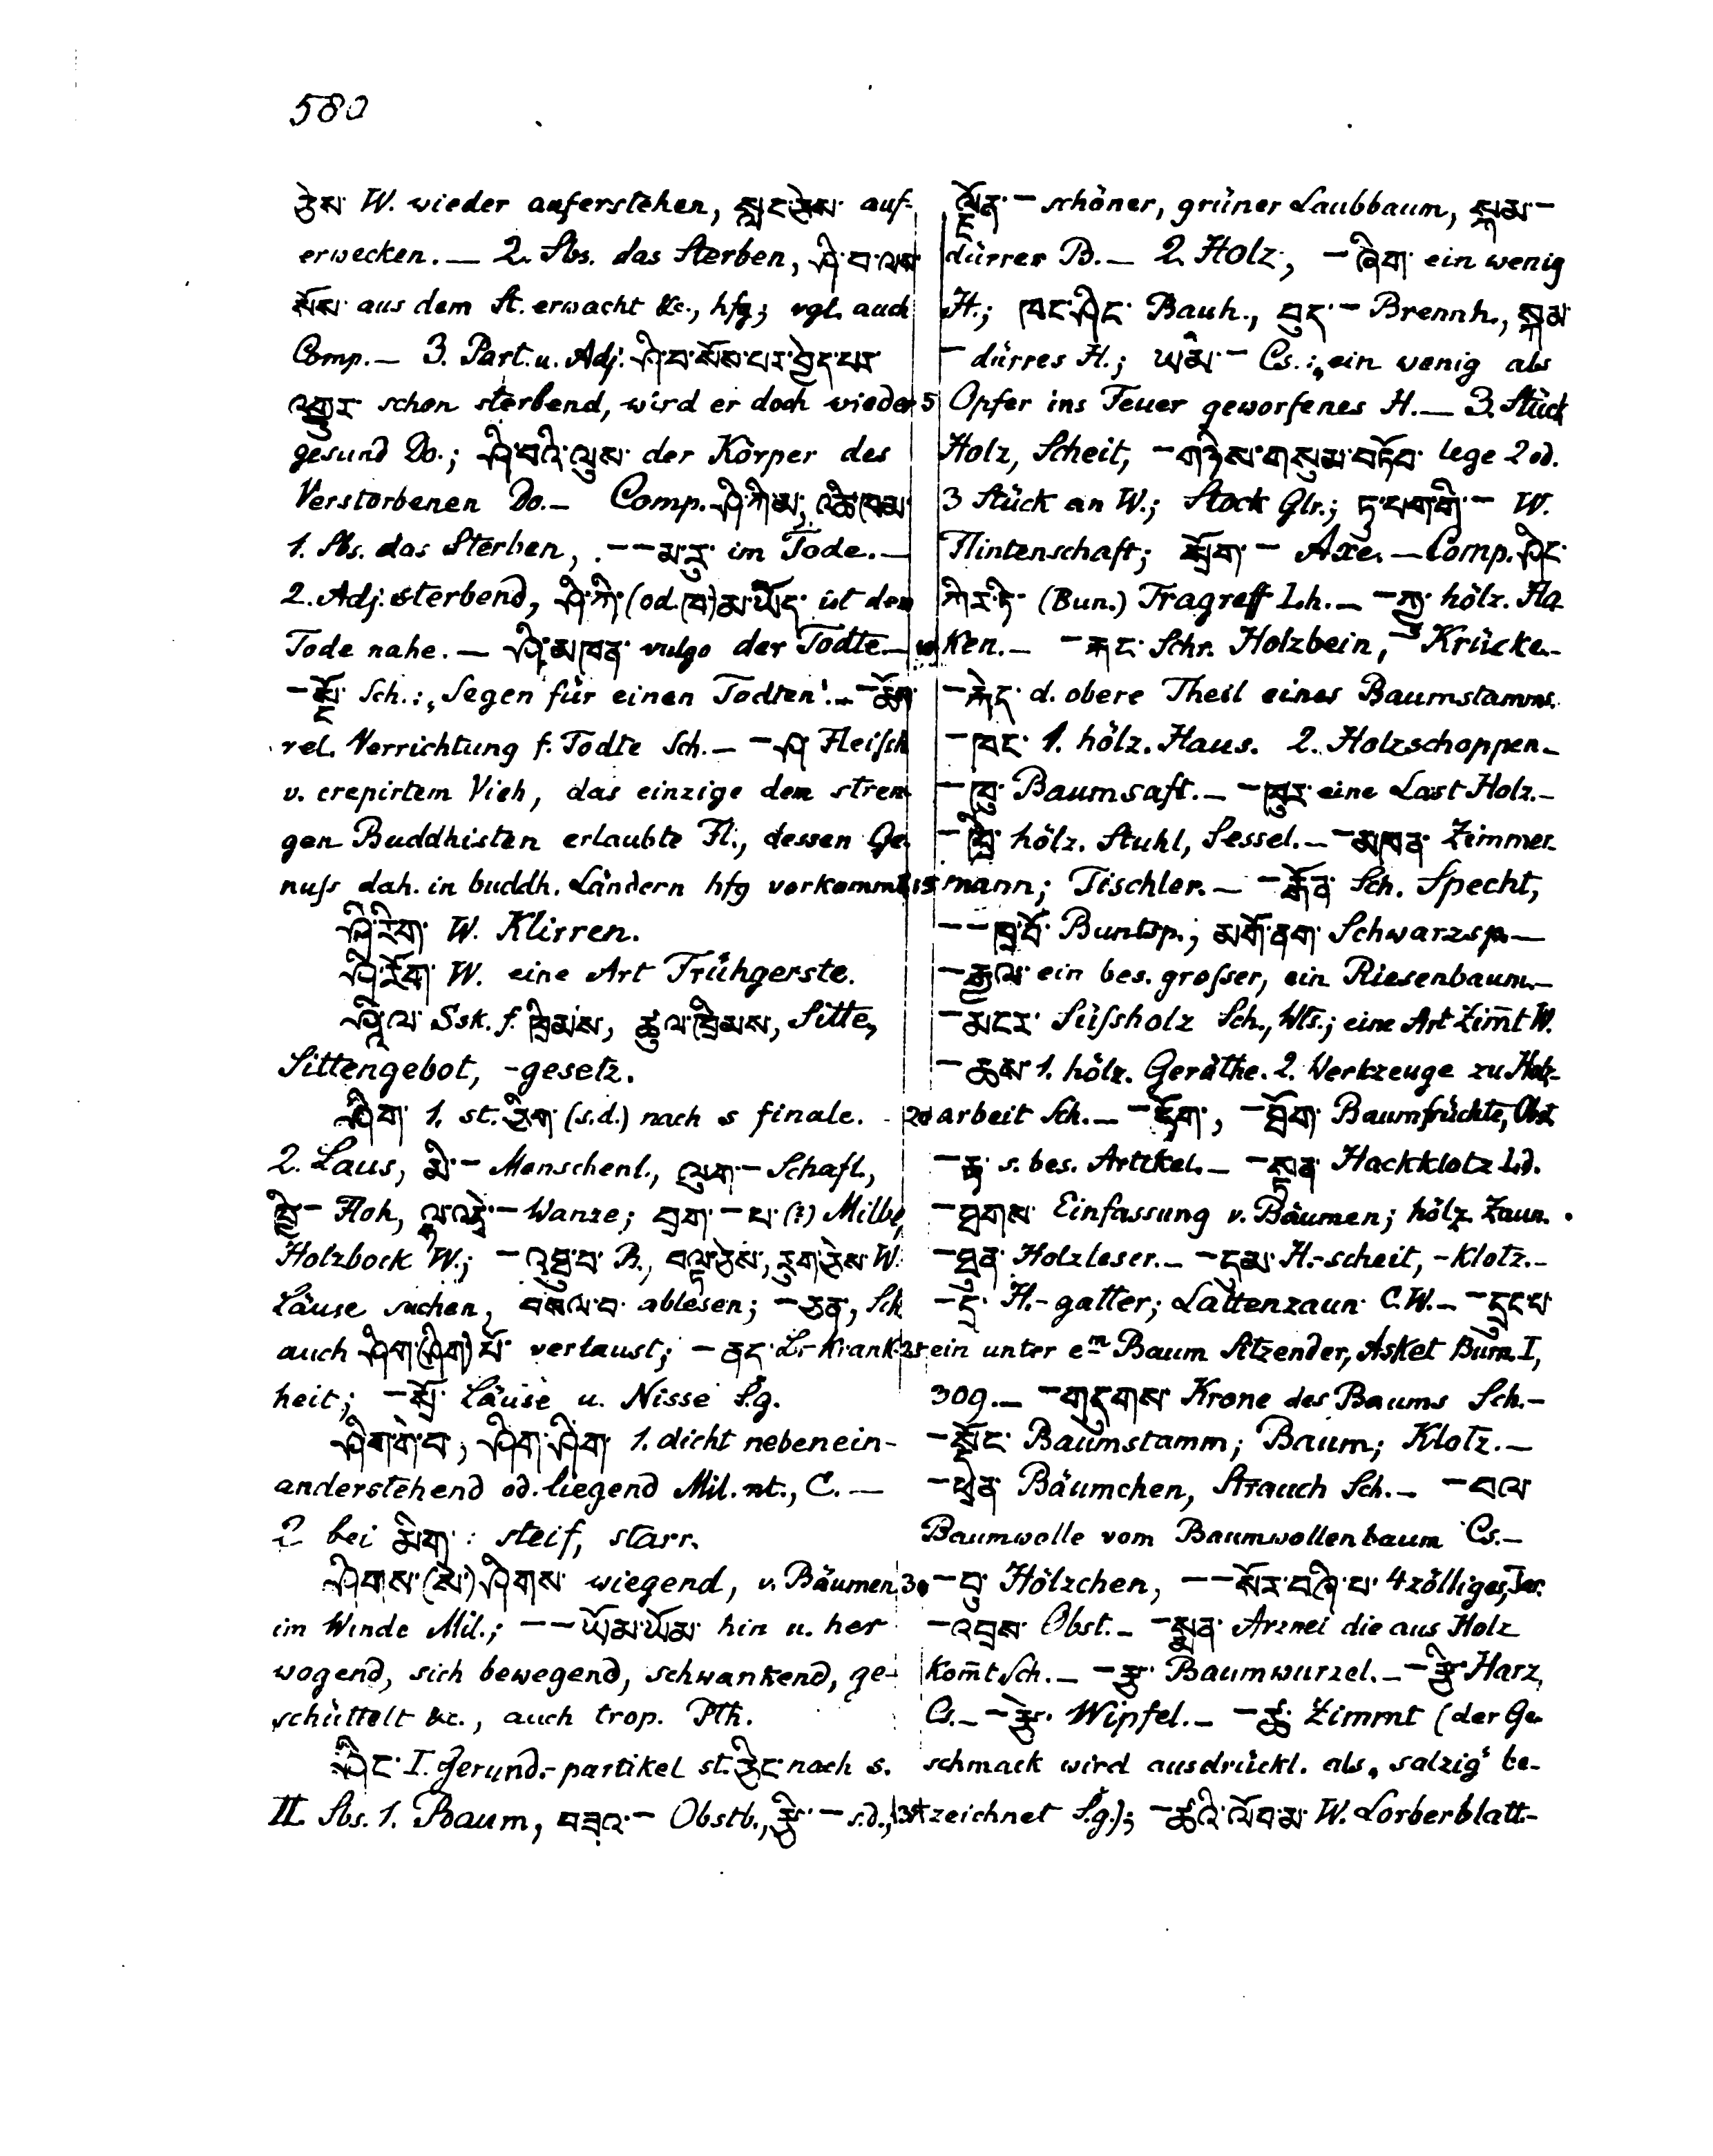 580
ཅེས་ W. wieder auferstehen, སླང་ཅེས་ auf-
erwecken. — 2. Sbs. das Sterben, ཤི་བ་ལས་
སོས་ aus dem St. erwacht &c., hfg; vgl. auch
Comp. — 3. Part. u. Adj. ཤི་བ་སོས་པར་བྱེད་པར་
འགྱུར་ schon sterbend, wird er doch wieder
gesund Do.; ཤི་བའི་ལུས་ der Körper des
Verstorbenen Do. — Comp. ཤི་ཀ་མ,
1. Sbs. das Sterben, — — མ་རུ་ im Tode. —
2. Adj. sterbend, ཤི་ཀ་ (od. ཁ) མ་ཡོད་ ist dem
Tode nahe. — ཤི་མཁན་ vulgo der Todte. —
— སྔོ་ Sch.: „Segen für einen Todten'. — — ཆོག
rel. Verrichtung f. Todte Sch. — — ཤ་ Fleisch
v. crepirtem Vieh, das einzige dem stren-
gen Buddhisten erlaubte Fl., dessen Ge-
nuſs dah. in buddh. Ländern hfg vorkommt.
ཤི་རིག་ W. Klirren.
ཤི་རོག་ W. eine Art Frühgerste.
ཤཱི་ལ་ Ssk. f. ཁྲིམས, ཚུལ་ཁྲིམས, Sitte,
Sittengebot, -gesetz.
ཤིག་ 1. st. ཅིག་ (s.d.) nach s finale.
2. Laus, མི་ — Menschenl., ལུག་ — Schafl.,
ཁྱི་ — Floh, — Wanze; བྲག་ — པ་ (?) Milbe,
Holzbock W.; — འཐུ་བ་ B., བལྟ་ཅེས་, རུག་ཅེས་ W.
Läuse suchen, བསལ་བ་ ablesen; — ཅན, Sch
auch ཤིག་(ཤིག) པོ་ verlaust; — ནད་ L-krank-
heit; — སྲོ་ Läuse u. Nisse S.g.
ཤིག་གེ་བ, ཤིག་ཤིག་ 1. dicht nebenein-
anderstehend od. liegend Mil. nt., C. —
2 bei མིག་: steif, starr.
ཤིགས་(སེ་)ཤིགས་ wiegend, v. Bäumen
im Winde Mil.; — — ཡོམ་ཡོམ་ hin u. her
wogend, sich bewegend, schwankend, ge-
schüttelt &c., auch trop. Pth.
ཤིང་ I. Gerund.-partikel st. ཅིང་ nach s.
II. Sbs. 1. Baum, བཟའ་ — Obstb., རྩི་ — s.d.,
ལྗོན་ — schöner, grüner Laubbaum, སྐམ་ —
dürrer B. — 2. Holz, — ཞིག་ ein wenig
H.; ཁང་ཤིང་ Bauh., བུད་ — Brennh., སྐམ
— dürres H.; ཡམ་ — Cs.: „ein wenig als
5 Opfer ins Feuer geworfenes H. — 3. Stück
Holz, Scheit, — གཉིས་གསུམ་བཏོབ་ lege 2 od.
3 Stück an W.; Stock Glr.; ཏུ་པག་གི་ — W.
Flintenschaft; སྲོག་ — Axe. — Comp. ཤིང་
ཀིར་ཏི་ (Bun.) Tragreff Lh. — — ཀྱུ་ hölz. Ha-
10 ken. — — རྐང་ Schr. Holzbein, Krücke. —
— རྐེད་ d. obere Theil eines Baumstamms.
— ཁང་ 1. hölz. Haus. 2. Holzschoppen —
— ཁུ་ Baumsaft. — — ཁུར་ eine Last Holz. —
— ཁྲི་ hölz. Stuhl, Sessel. — — མཁན་ Zimmer-
15 mann; Tischler. — — རྟོན་ Sch. Specht,
— — ཁྲ་བོ་ Buntsp.; མགོ་ནག་ Schwarzsp. —
— རྒྱལ་ ein bes. groſser, ein Riesenbaum. —
— མངར་ Süſsholz Sch., Wts.; eine Art Zim̄t W.
— ཆས་ 1. hölz. Geräthe. 2. Werkzeuge zu Holz-
20 arbeit Sch. — — ཏོག་, — ཐོག་ Baumfrüchte, Obst
— རྟ་ s. bes. Artikel. — — སྟན་ Hackklotz Ld.
— ཐགས་ Einfassung v. Bäumen; hölz. Zaun.
— ཐུན་ Holzleser. — — དུམ་ H.-scheit, -klotz. —
— དྲ་ H.-gatter; Lattenzaun C.W. — — དྲུང་པ་
25 ein unter em Baum Sitzender, Asket Burn. I,
309. — — གདུགས་ Krone des Baums Sch. —
— སྡོང་ Baumstamm; Baum; Klotz. —
— ཕྲན་ Bäumchen, Strauch Sch. — — བལ་
Baumwolle vom Baumwollenbaum Cs. —
30 — བུ་ Hölzchen, — — སོར་བཞི་པ་ 4zölliges,
— འབྲས་ Obst. — — སྨན་ Arznei die aus Holz
kom̄t Sch. — — རྩ་ Baumwurzel. — — རྩི་ Harz,
Cs. — — རྩེ་ Wipfel. — — ཚ་ Zimmt (der Ge-
schmack wird ausdrückl. als „salzig' be-
zeichnet S.g.); — ཚའི་ལོབ་མ་ W. Lorberblatt. —